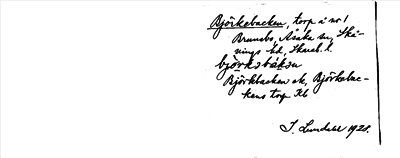 Björkebacken, torp å nr 1
Brunsbo, Åsaka sn, Skå-
nings hd, Skarab. l.
björkəbákən
Björkbacken ek, Björkebac-
kens torp Kb
J. Lundahl 1928.